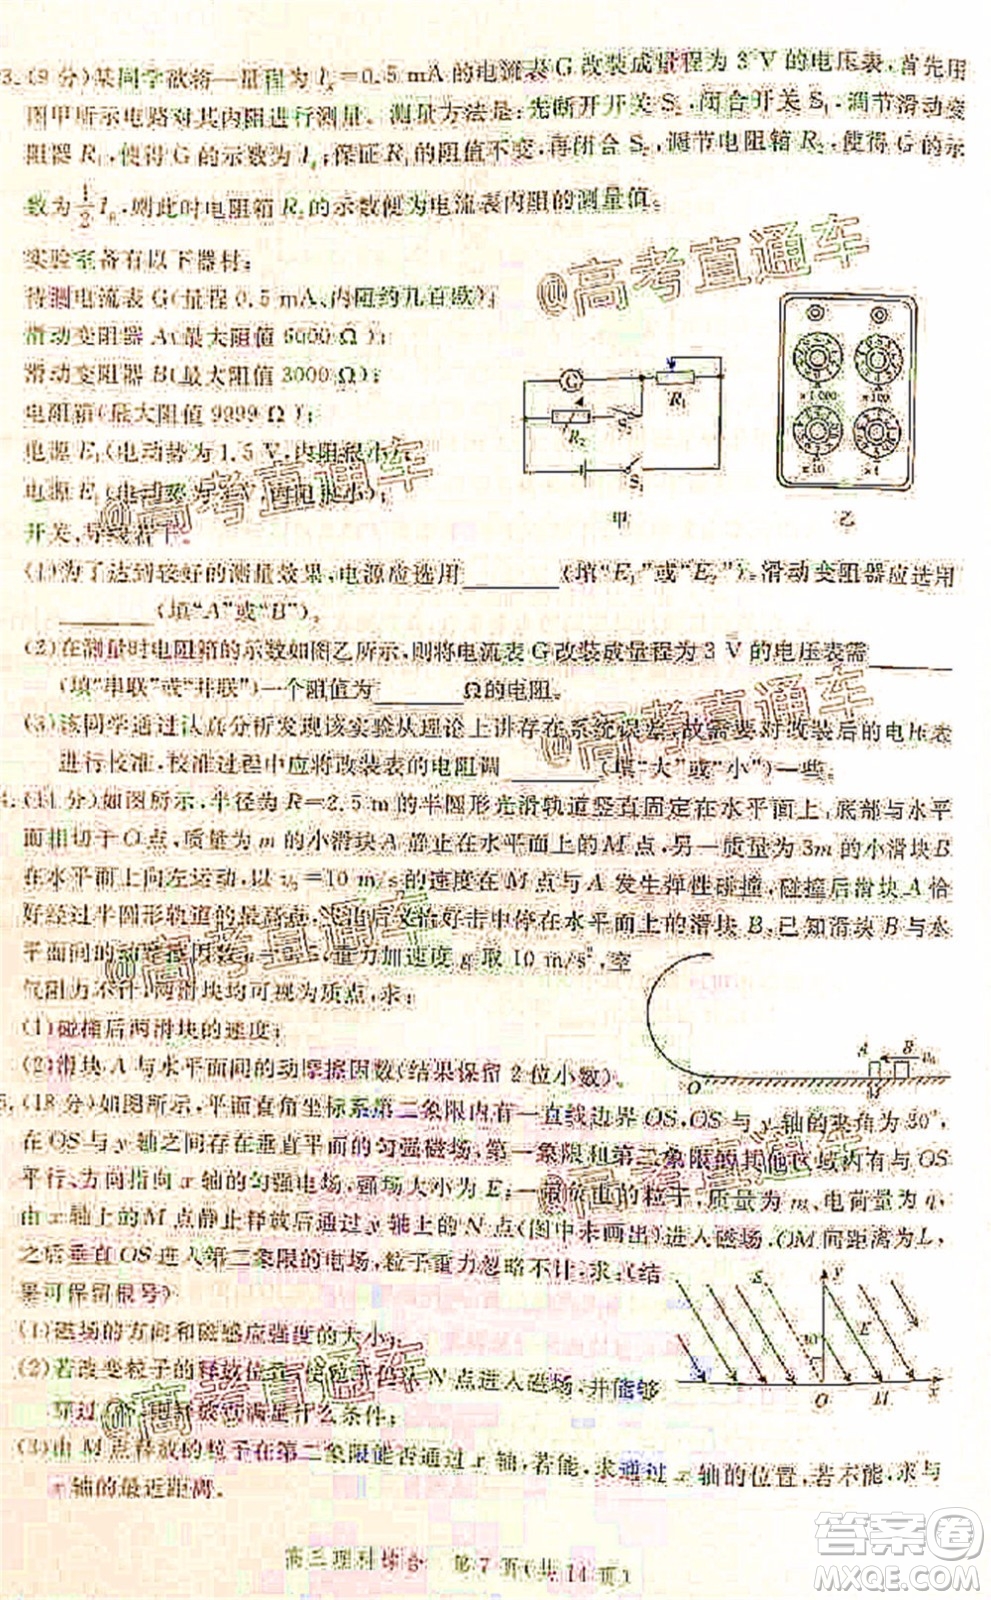 3.(9分)某同学欲将一量程为Ig=0.5 mA的电流表G改装成量程为3 V的电压表,首先用
图甲所示电路对其内阻进行测量。测量方法是:先断开开关S2,闭合开关S1,调节滑动变
阻器R1,使得G的示数为Ig;保证R1的阻值不变,再闭合S2,调节电阻箱R2,使得G的示
数为1/2 Ig,则此时电阻箱R2的示数便为电流表内阻的测量值。
实验室备有以下器材:
待测电流表G(量程0.5 mA,内阻约几百欧);
滑动变阻器A(最大阻值 000 Ω);
滑动变阻器B(最大阻值3000 Ω);
电阻箱(最大阻值9999 Ω);
电源E1(电动势为1.5 V,内阻很小);
电源E2(电动势为 V,内阻很小);
开关,导线若干。
G
R1
R2
S2
S1
甲
×1 000
×100
×10
×1
乙
(1)为了达到较好的测量效果,电源应选用______(填“E1”或“E2”),滑动变阻器应选用
______(填“A”或“B”)。
(2)在测量时电阻箱的示数如图乙所示,则将电流表G改装成量程为3 V的电压表需______
(填“串联”或“并联”)一个阻值为______Ω的电阻。
(3)该同学通过认真分析发现该实验从理论上讲存在系统误差,故需要对改装后的电压表
进行校准,校准过程中应将改装表的电阻调______(填“大”或“小”)一些。
4.(11分)如图所示,半径为R=2.5 m的半圆形光滑轨道竖直固定在水平面上,底部与水平
面相切于O点,质量为m的小滑块A静止在水平面上的M点,另一质量为3m的小滑块B
在水平面上向左运动,以v0=10 m/s的速度在M点与A发生弹性碰撞,碰撞后滑块A恰
好经过半圆形轨道的最高点,飞出后又恰好击中停在水平面上的滑块B,已知滑块B与水
平面间的动摩擦因数 ,重力加速度g取10 m/s²,空
气阻力不计,两滑块均可视为质点,求:
(1)碰撞后两滑块的速度;
(2)滑块A与水平面间的动摩擦因数(结果保留2位小数)。
A
B
v0
O
M
5.(18分)如图所示,平面直角坐标系第二象限内有一直线边界OS,OS与y轴的夹角为30°,
在OS与y轴之间存在垂直平面的匀强磁场,第一象限和第二象限的其他区域内有与OS
平行、方向指向x轴的匀强电场,场强大小为E;一质量为m、电荷量为q,
由x轴上的M点静止释放后通过y轴上的N点(图中未画出)进入磁场,OM间距离为L,
之后垂直OS进入第二象限的电场,粒子重力忽略不计,求:(结
果可保留根号)
(1)磁场的方向和磁感应强度的大小;
(2)若改变粒子的释放位置,使粒子仍从N点进入磁场,并能够
穿过OS,则释放点满足什么条件;
(3)由M点释放的粒子在第二象限能否通过x轴,若能,求通过x轴的位置,若不能,求与
x轴的最近距离。
S
y
E
30°
O
M
x
高三理科综合 第7页(共14页)
@高考直通车
@高考直通车
@高考直通车
@高考直通车
@高考直通车
@高考直通车
答案圈
MXQE.COM